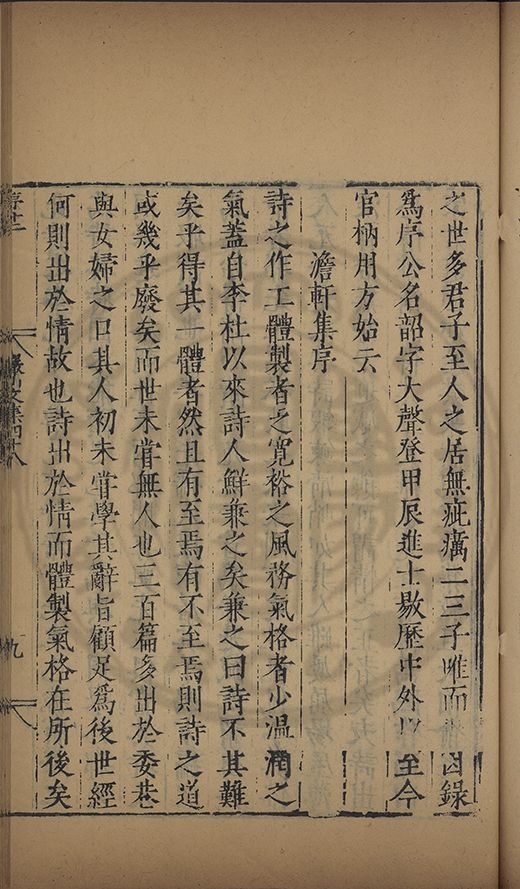 之世多君子至人之居無疵癘二三子唯而 因錄
爲序公名韶字大聲登甲辰進士敭歷中外以至今
官柄用方始云
澹軒集序
詩之作工體製者乏寬裕之風務氣格者少溫潤之
氣蓋自李杜以來詩人鮮兼之矣兼之曰詩不其難
矣乎得其一體者然且有至焉有不至焉則詩之道
或幾乎廢矣而世未甞無人也三百篇多出於委巷
與女婦之口其人初未甞學其辭旨顧足爲後世經
何則出於情故也詩出於情而體製氣格在所後矣
九